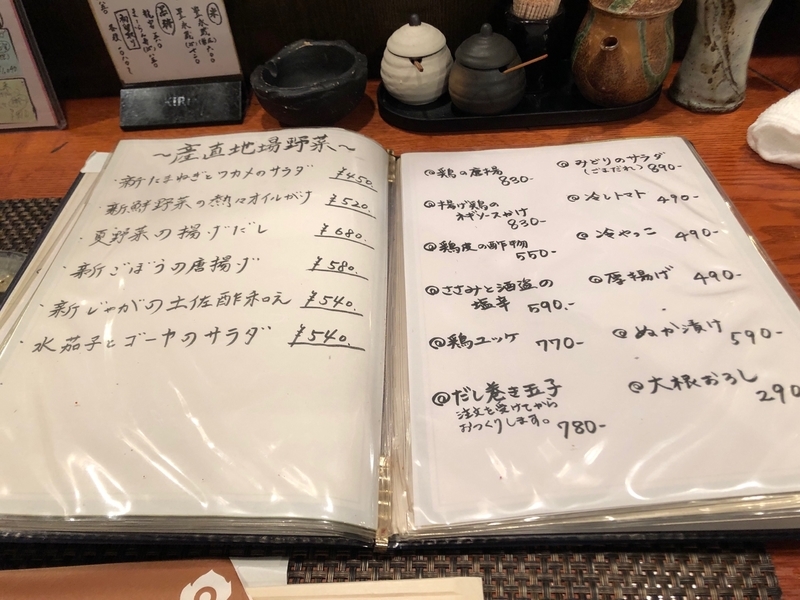 〜産直地場野菜〜
・新たまねぎとワカメのサラダ ¥450.
・新鮮野菜の熱々オイルがけ ¥520.
・夏野菜の揚げだし ¥680.
・新ごぼうの唐揚げ ¥580.
・新じゃがの土佐酢和え ¥540.
・水茄子とゴーヤのサラダ ¥540.
@鶏の唐揚 830-
@揚げ鶏の
ネギソースがけ 830-
@鶏皮の酢物 550-
@ささみと酒盗の
塩辛 590.-
@鶏ユッケ 770-
@だし巻き玉子
注文を受けてから
おつくりします。 780-
@みどりのサラダ
(ごまだれ) 890-
@冷しトマト 490-
@冷やっこ 490-
@厚揚げ 490-
@ぬか漬け 590-
@大根おろし 290
KIRI